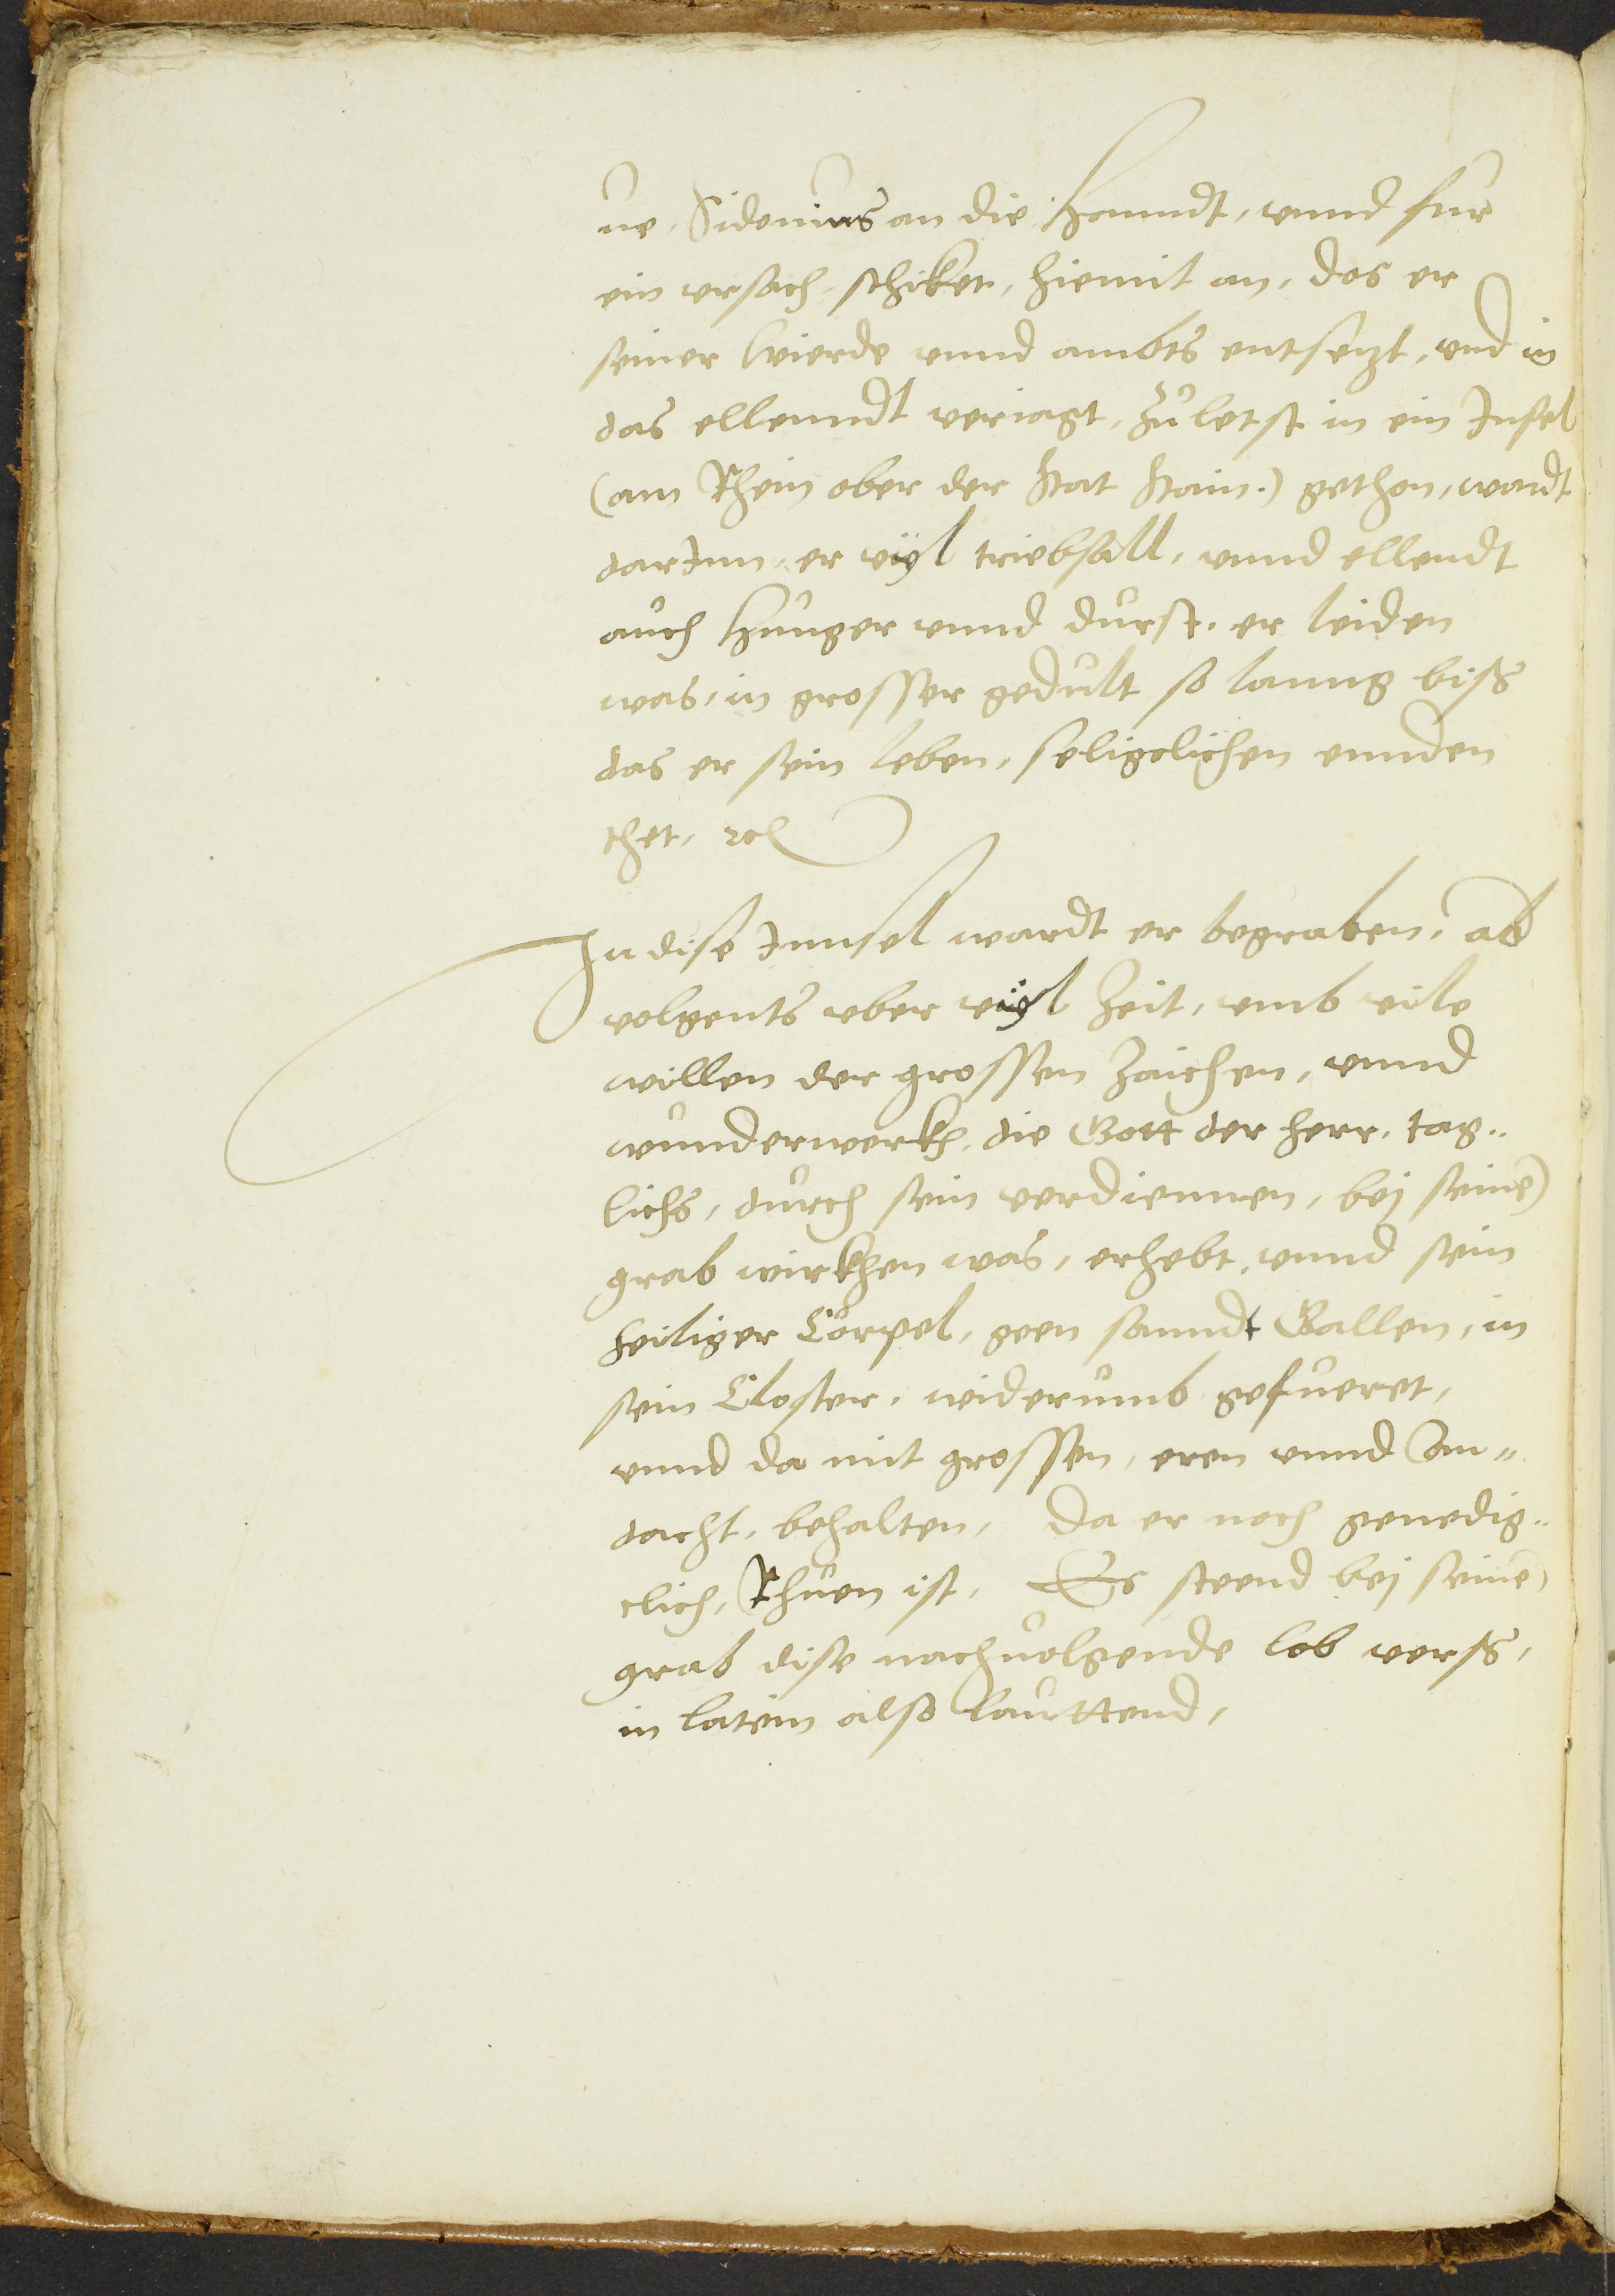 ne, Sidonius an die hanndt, unnd fur
ein ursach, schiket, hiemit an, das er
seiner wierde unnd ambts entsezt, und in
das ellenndt veriagt, zuletst in ein Insel
(am Rhein ober der Stat Stain.) gethon, wardt
darInn, er vÿl triebsall, unnd ellendt
auch hunger unnd durst. er leiden
was, in grosser gedult so lanng biss
das er sein leben, seligclichen ennden
thet, etc
In dise Innsel wardt er begraben, ab
volgents uber vÿl zeit, umb vile
willen der grossen zaichen, unnd
wunderwerkh, die Gott der herr, tag-
lichs, durch sein verdiennen, bej seinē
grab wirkhen was, erhebt, unnd sein
heiliger Cörpel, geen sanndt Gallen, in
sein Closter, widerumb gefueret,
unnd da mit grossen, eren unnd An-
dacht, behalten, Da er noch genedig-
clich, Rhuen ist, Es steend bej seinē
grab dise nachuolgende lob verss,
in latein also lauttend,